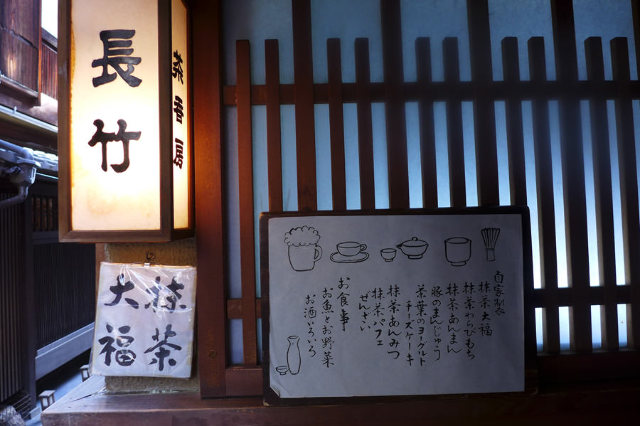 長竹
茶香房
抹茶
大福
自家製
抹茶大福
抹茶わらびもち
抹茶あんまん
豚のまんじゅう
茶葉のヨーグルト
チーズケーキ
抹茶あんみつ
抹茶パフェ
ぜんざい
お食事
お魚とお野菜
お酒いろいろ